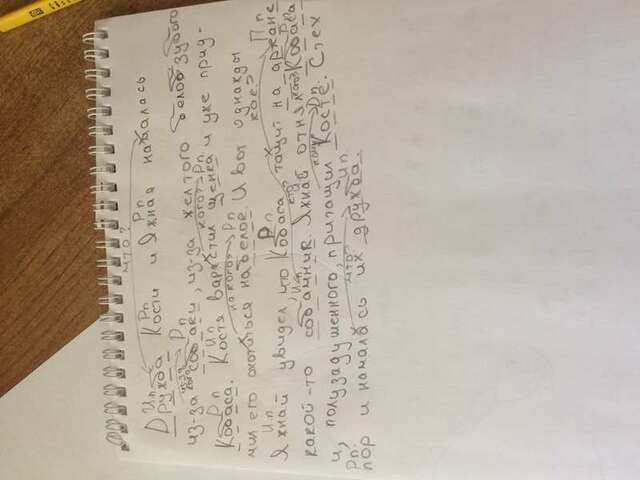 Дружба Кости и Яхная началась
из-за собаки, из-за желтого белозубого
Кобаса. Костя вырастил щенка и уже приу-
чил его охотиться на белок И вот однажды
Яхнай увидел, что Кобаса тащит на аркане
какой-то охотник. Яхнай отнял Кобаса
и, полузадушенного, притащил Косте. С тех
пор и началась их дружба.